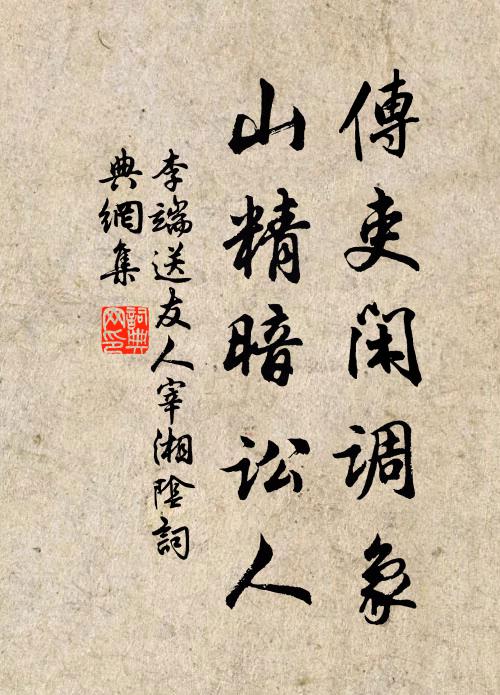 傳吏閑調象
山精暗訟人
李端送友人宰湘陰詞
典網集
詞典
网印